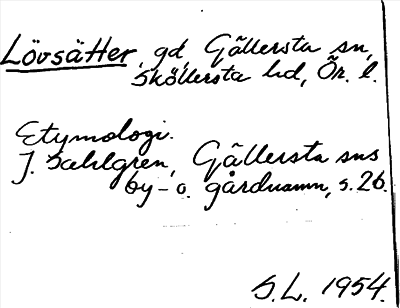 Lövsätter, gd, Gällersta sn,
Sköllersta hd, Ör. l.
Etymologi.
J. Sahlgren, Gällersta sns
by- o. gårdnamn, s. 26.
S.L. 1954.